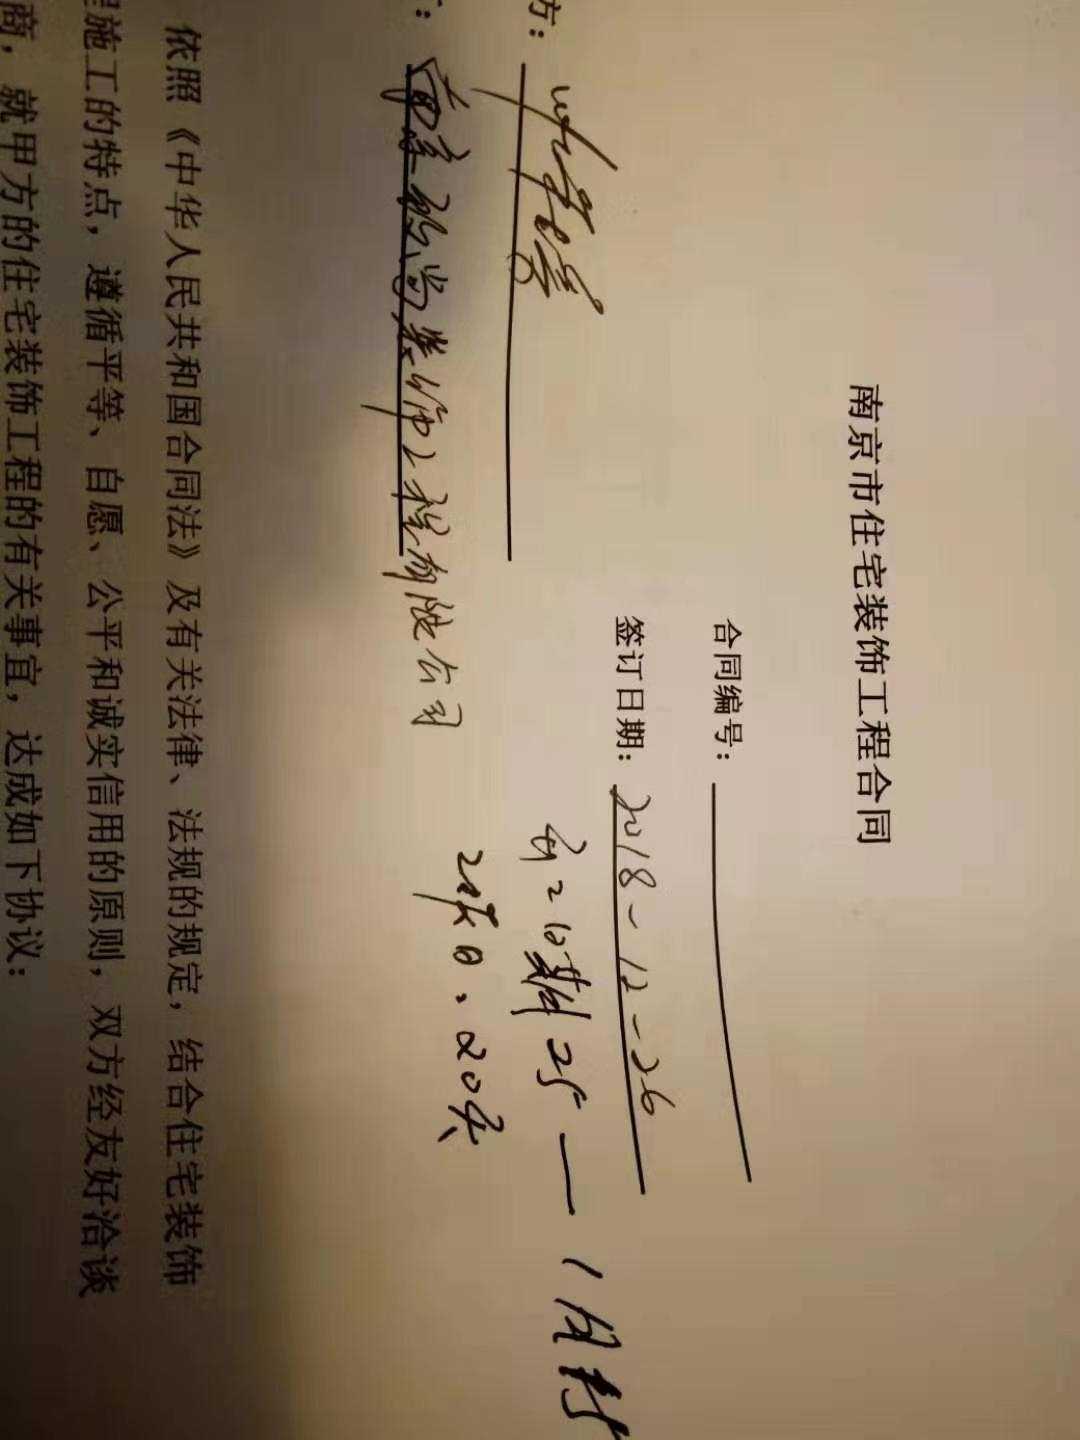 南京市住宅装饰工程合同
合同编号：
签订日期：2018-12-26
方：
：南京 尚装饰工程有限公司
20天
依照《中华人民共和国合同法》及有关法律、法规的规定，结合住宅装饰
程施工的特点，遵循平等、自愿、公平和诚实信用的原则，双方经友好洽谈
商，就甲方的住宅装饰工程的有关事宜，达成如下协议：